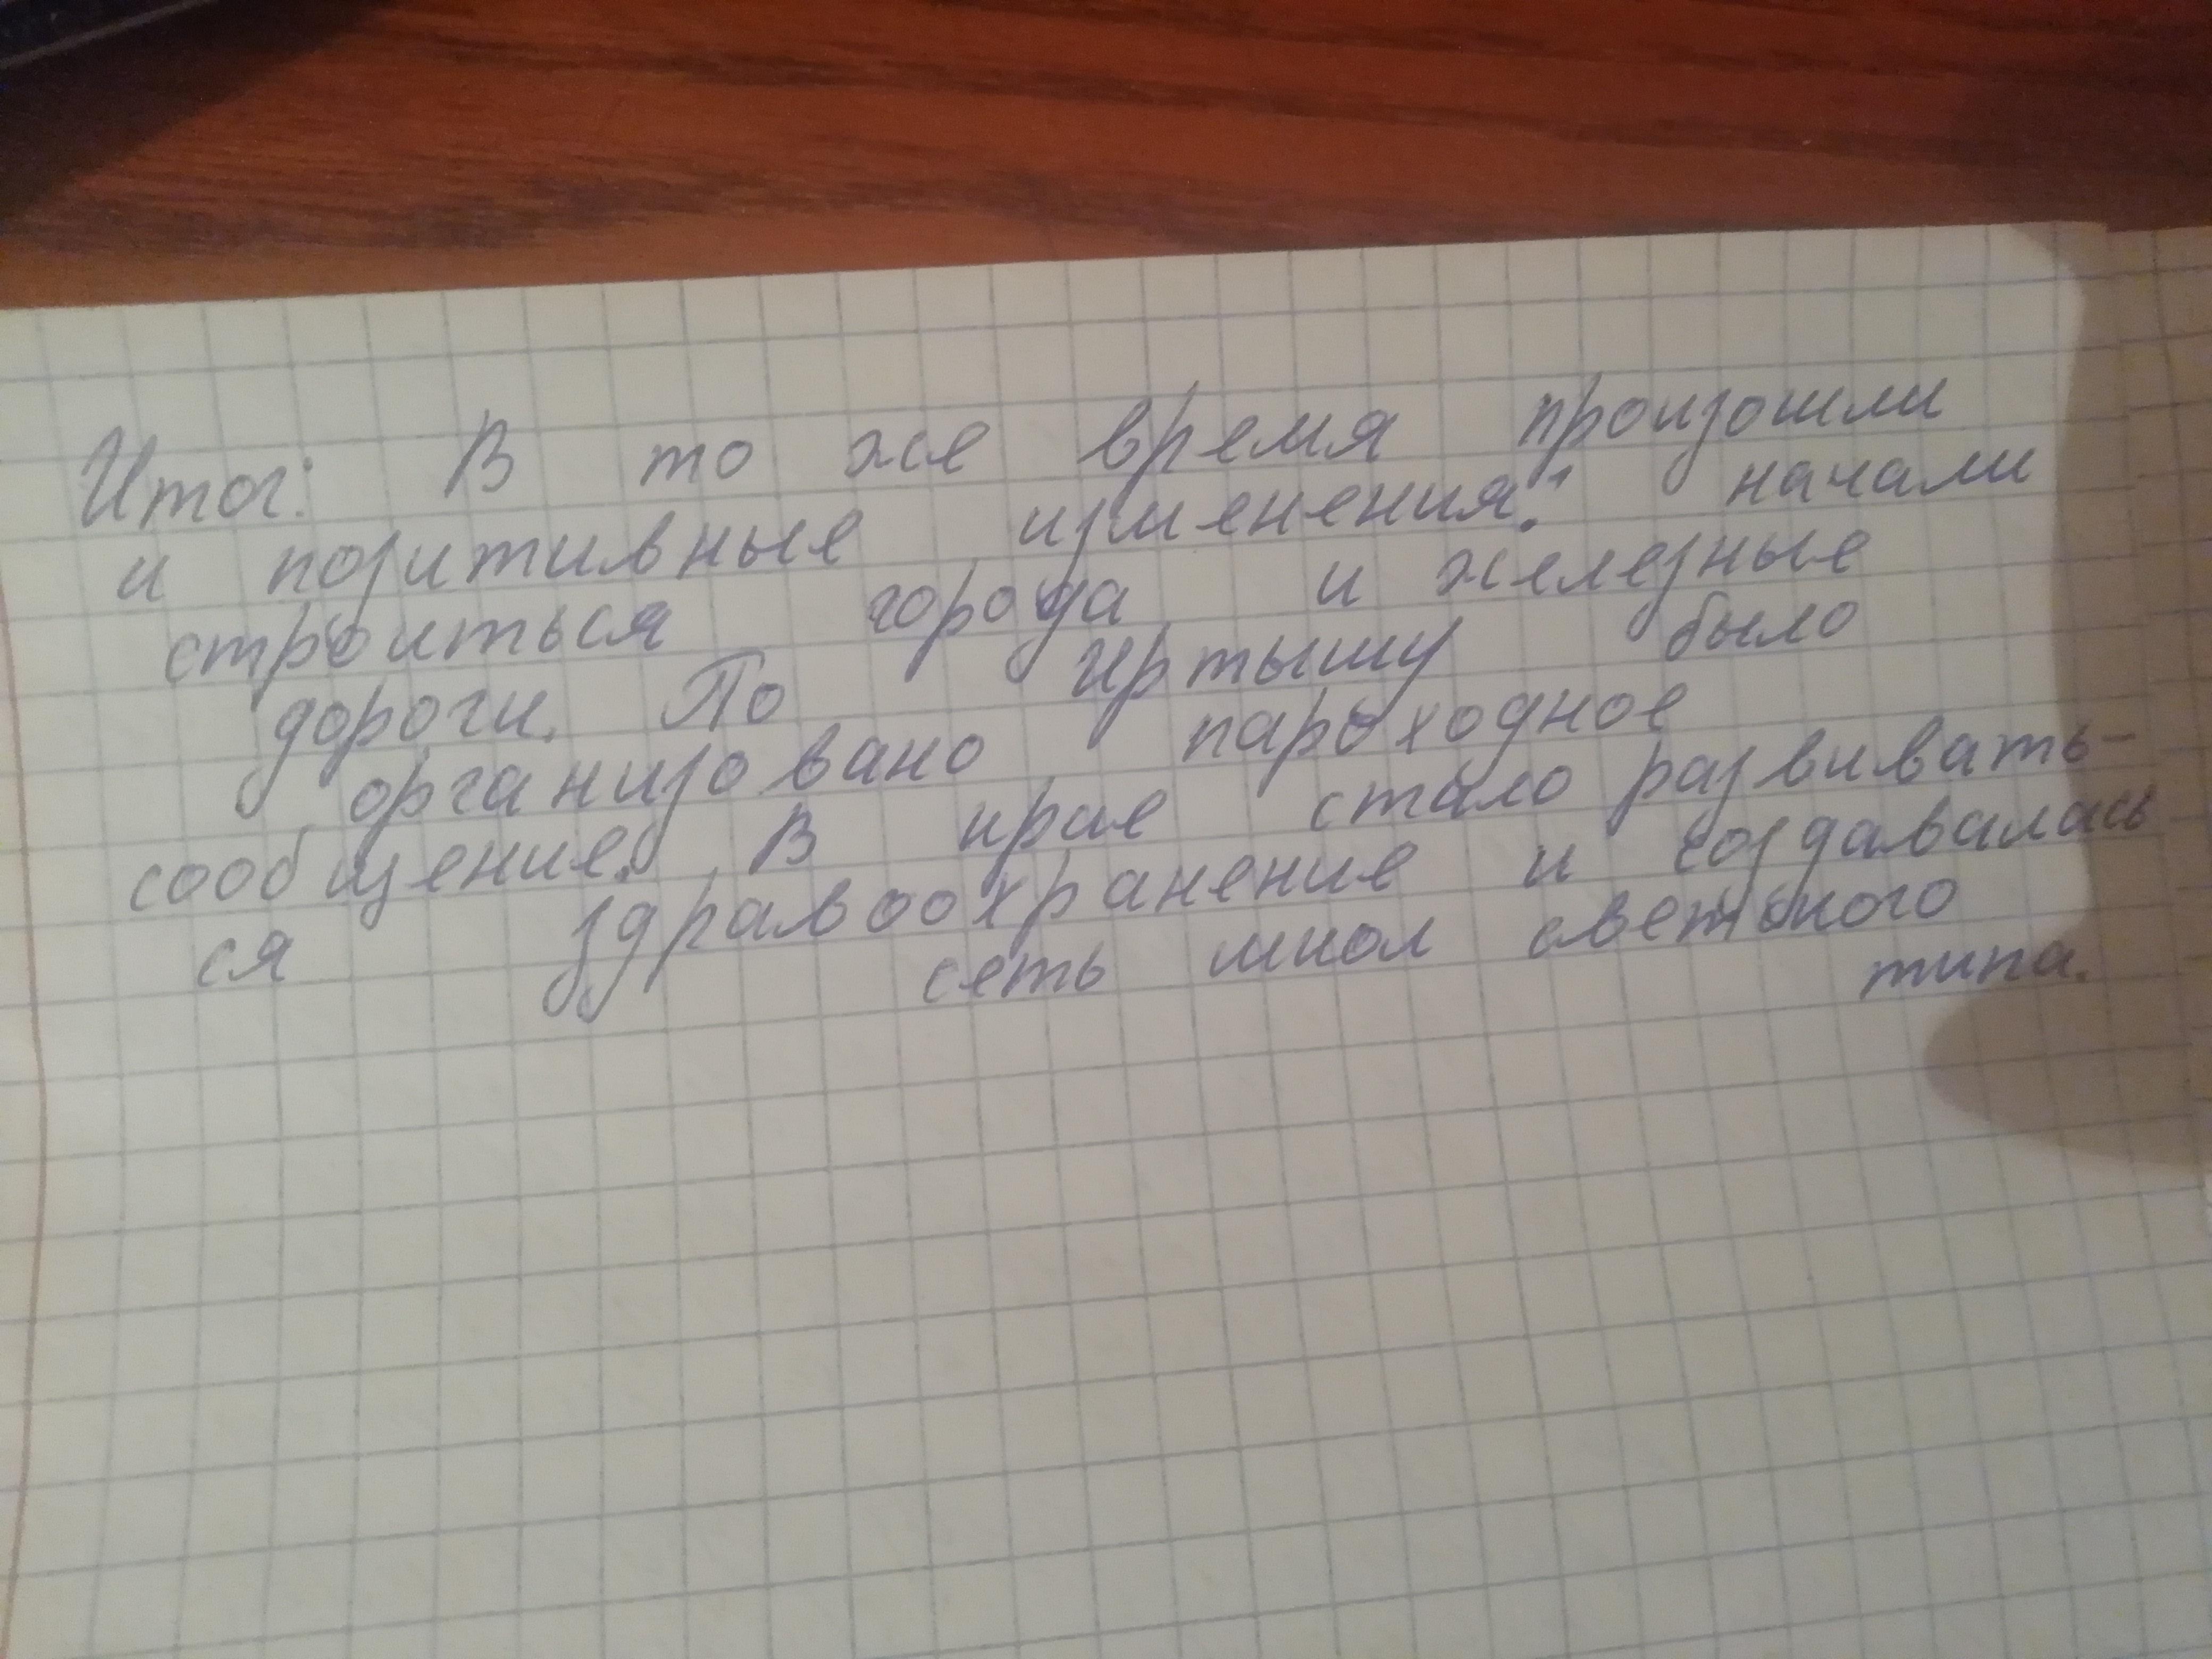 Итог: В то же время произошли
и позитивные изменения: начали
строиться города и железные
дороги. По Иртышу было
организовано пароходное
сообщение. В крае стало развивать-
ся здравоохранение и создавалась
сеть школ светского
типа.